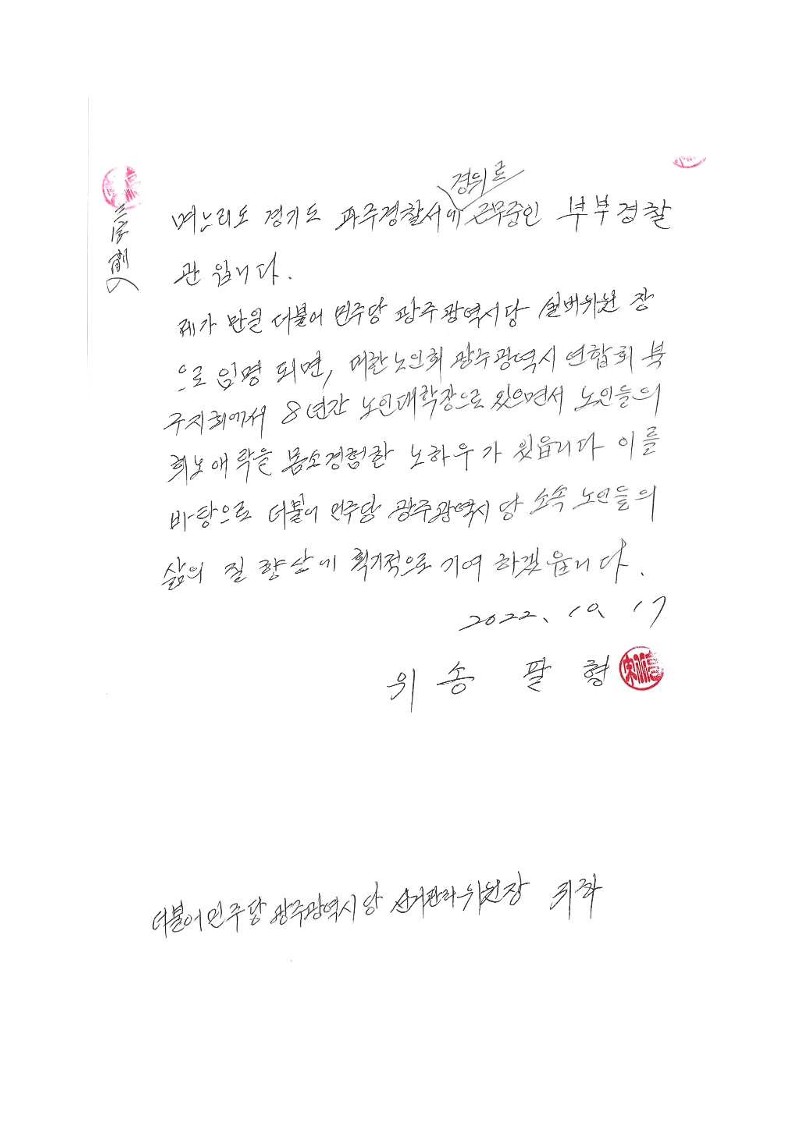 경위로
며느리도 경기도 파주경찰서에 근무중인 부부경찰
관 입니다.
三字削入
제가 만일 더불어 민주당 광주광역시당 실버위원장
으로 임명 되면, 대한노인회 광주광역시 연합회 북
구지회에서 8년간 노인대학장으로 있으면서 노인들의
희노애락을 몸소경험한 노하우가 있읍니다 이를
바탕으로 더불어 민주당 광주광역시당 소속 노인들의
삶의 질 향상에 획기적으로 기여 하겠읍니다.
2022. 10. 17
위 송 팔 형
더불어민주당 광주광역시당 선거관리위원장 귀하